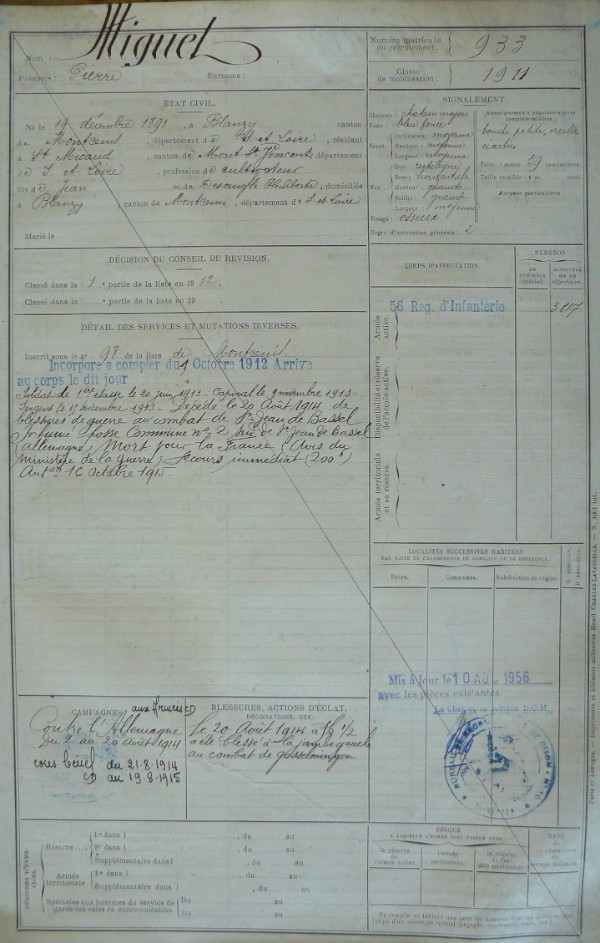 Nom : Miguet
Prénoms : Pierre Surnoms :
Numéro matricule du recrutement. 933
Classe de mobilisation : 1911
ÉTAT CIVIL.
Né le 19 décembre 1891, à Blanzy canton
de Montcenis, département d S et Loire, résidant
à St Micaud, canton de Mont St Vincent, département
de S et Loire, profession de cultivateur
fils de Jean et de Desangle, domiciliés
à Blanzy canton de Montcenis, département d S et Loire
Marié le
SIGNALEMENT.
Cheveux : chatain moyen
Yeux : bleu foncé
Front : Inclinaison : moyenne
Hauteur : moyenne
Largeur : moyenne
Nez : Dos : rectiligne
Base : horizontale
Hauteur : grande
Saillie : grande
Largeur : moyenne
Visage : osseux
Renseignements physionomiques complémentaires :
bouche petite, oreilles
écartées
Taille : 1 mètre 59 centimètres.
Taille rectifiée : 1 m. cent.
Marques particulières
Degré d'instruction générale : 2
DÉCISION DU CONSEIL DE RÉVISION.
Classé dans la 1 e partie de la liste en 1912.
Classé dans la e partie de la liste en 19
CORPS D'AFFECTATION.
NUMÉROS
au contrôle spécial.
matricule ou au répertoire.
Armée active.
56 Reg. d'Infanterie
Disponibilité et réserve de l'armée active.
Armée territoriale et sa réserve.
DÉTAIL DES SERVICES ET MUTATIONS DIVERSES.
Inscrit sous le n° 98 de la liste de Montcenis.
Incorporé à compter du Octobre 1912 Arrivé
au corps le dit jour
Soldat de 1ère classe le 20 juin 1913 - Caporal le 9 novembre 1913
Sergent le - Décédé le 20 Août 1914 de
blessures de guerre au combat de St Jean de Bassel
Inhumé fosse Commune n° 2 St Jean de Bassel
(Allemagne) Mort pour la France (Avis du
ministre de la guerre). Secours immédiat (200 f)
16 Octobre 1915.
LOCALITÉS SUCCESSIVES HABITÉES
PAR SUITE DE CHANGEMENTS DE DOMICILE OU DE RÉSIDENCE.
Dates. Communes. Subdivision de région.
D. domicile. R. résidence.
Mis à jour le 10 AOU 1956
avec les pièces existantes.
Le Chef de la Section D.O.M.,
CAMPAGNES
aux Armées CD
Contre l'Allemagne
Du 2 au 20 août 1914
du 21-8-1914
CD au 19-8-1915
BLESSURES, ACTIONS D'ÉCLAT,
DÉCORATIONS, ETC.
Le 20 Août 1914 à
a été blessé à la jambe gauche
au combat de gosselmingen
PÉRIODES D'EXERCICES.
Réserve 1re dans l , du au
2e dans l , du au
Supplémentaire dans l , du au
Armée territoriale 1re dans l , du au
Supplémentaire dans l , du au
Spéciales aux hommes du service de garde des voies de communication Du au
Du au
ÉPOQUE
À LAQUELLE L'HOMME DOIT PASSER DANS :
la réserve de l'armée active
l'armée territoriale.
la réserve de l'armée territoriale.
DATE
de la libération du service militaire.
Paris et Limoges. — Imprimerie et librairie militaires Henri CHARLES-LAVAUZELLE.